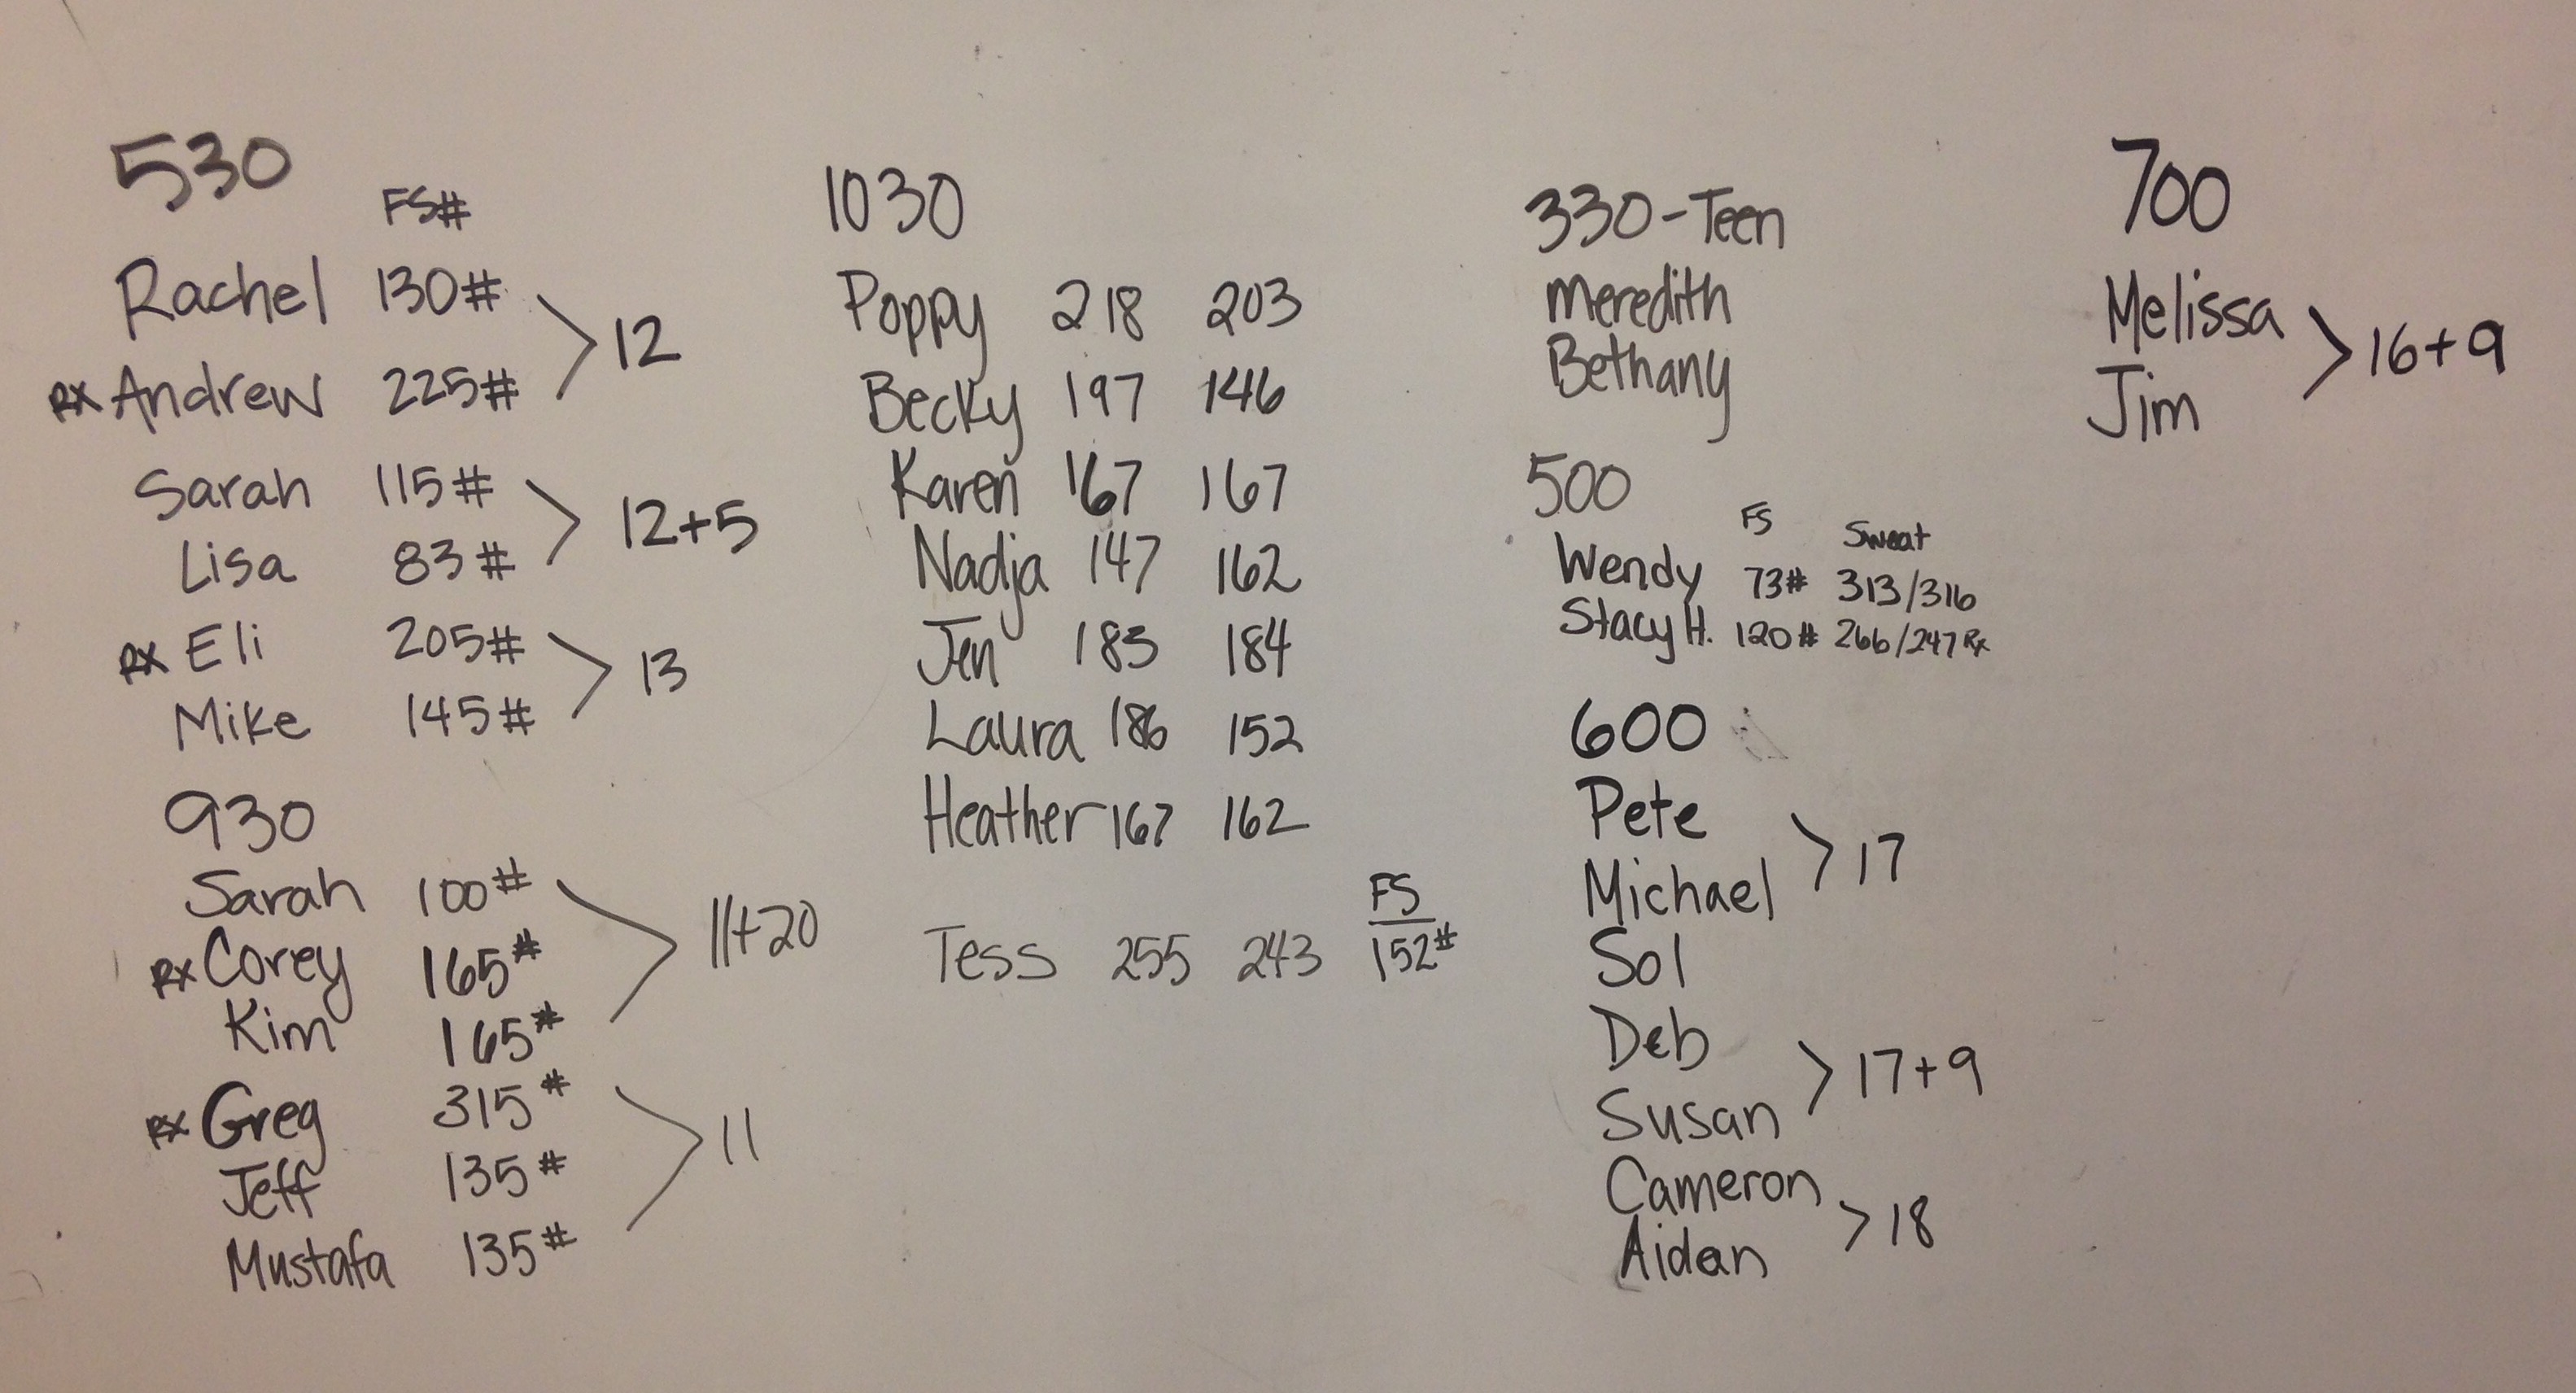 530
FS#
Rachel 130#
RX Andrew 225# > 12
Sarah 115#
Lisa 83# > 12+5
RX Eli 205#
Mike 145# > 13
930
Sarah 100#
RX Corey 165# > 11+20
Kim 165#
RX Greg 315#
Jeff 135# > 11
Mustafa 135#
1030
Poppy 218 203
Becky 197 146
Karen 167 167
Nadja 147 162
Jen 183 184
Laura 186 152
Heather 167 162
FS
Tess 255 243 152#
330-Teen
Meredith
Bethany
500
FS Sweat
Wendy 73# 313/316
Stacy H. 120# 266/247 Rx
600
Pete
Michael > 17
Sol
Deb
Susan > 17+9
Cameron
Aidan > 18
700
Melissa
Jim > 16+9